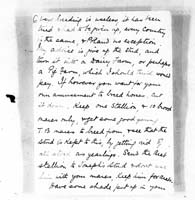 Horse breeding is useless it has been
tried & had to be given up, every country
is the same & Poland no exception.
My advice is give up the stud, and
turn it into a Dairy Farm, or perhaps
a Pig Farm, which I should think would
pay. If however you want for your
own amusement to breed horses, cut
it down. Keep one Stallion & 10 brood
mares only, & get some good young
T.B mares to breed from, see that the
stud is kept to this by getting rid of
as yearlings. Send the
stallion to Joseph's stud
with your mares, keep him for
Have some sheds put up in your